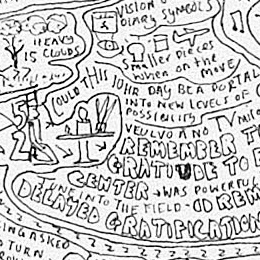 VISION O
DIARY SYMBOLS
HEAVY
IS CLOUDS
Smaller Pieces
when on the
MOVE
COULD THIS 10HR DAY BE A PORTAL
INTO NEW LEVELS OF
POSSIBILITY
VEULVO AND TV
REMEMBER T
GRATITUDE TO
CENTER → WAS POWERFUL
TUNE INTO THE FIELD - REM
DELAYED GRATIFICATION
ING ASKED
TURN